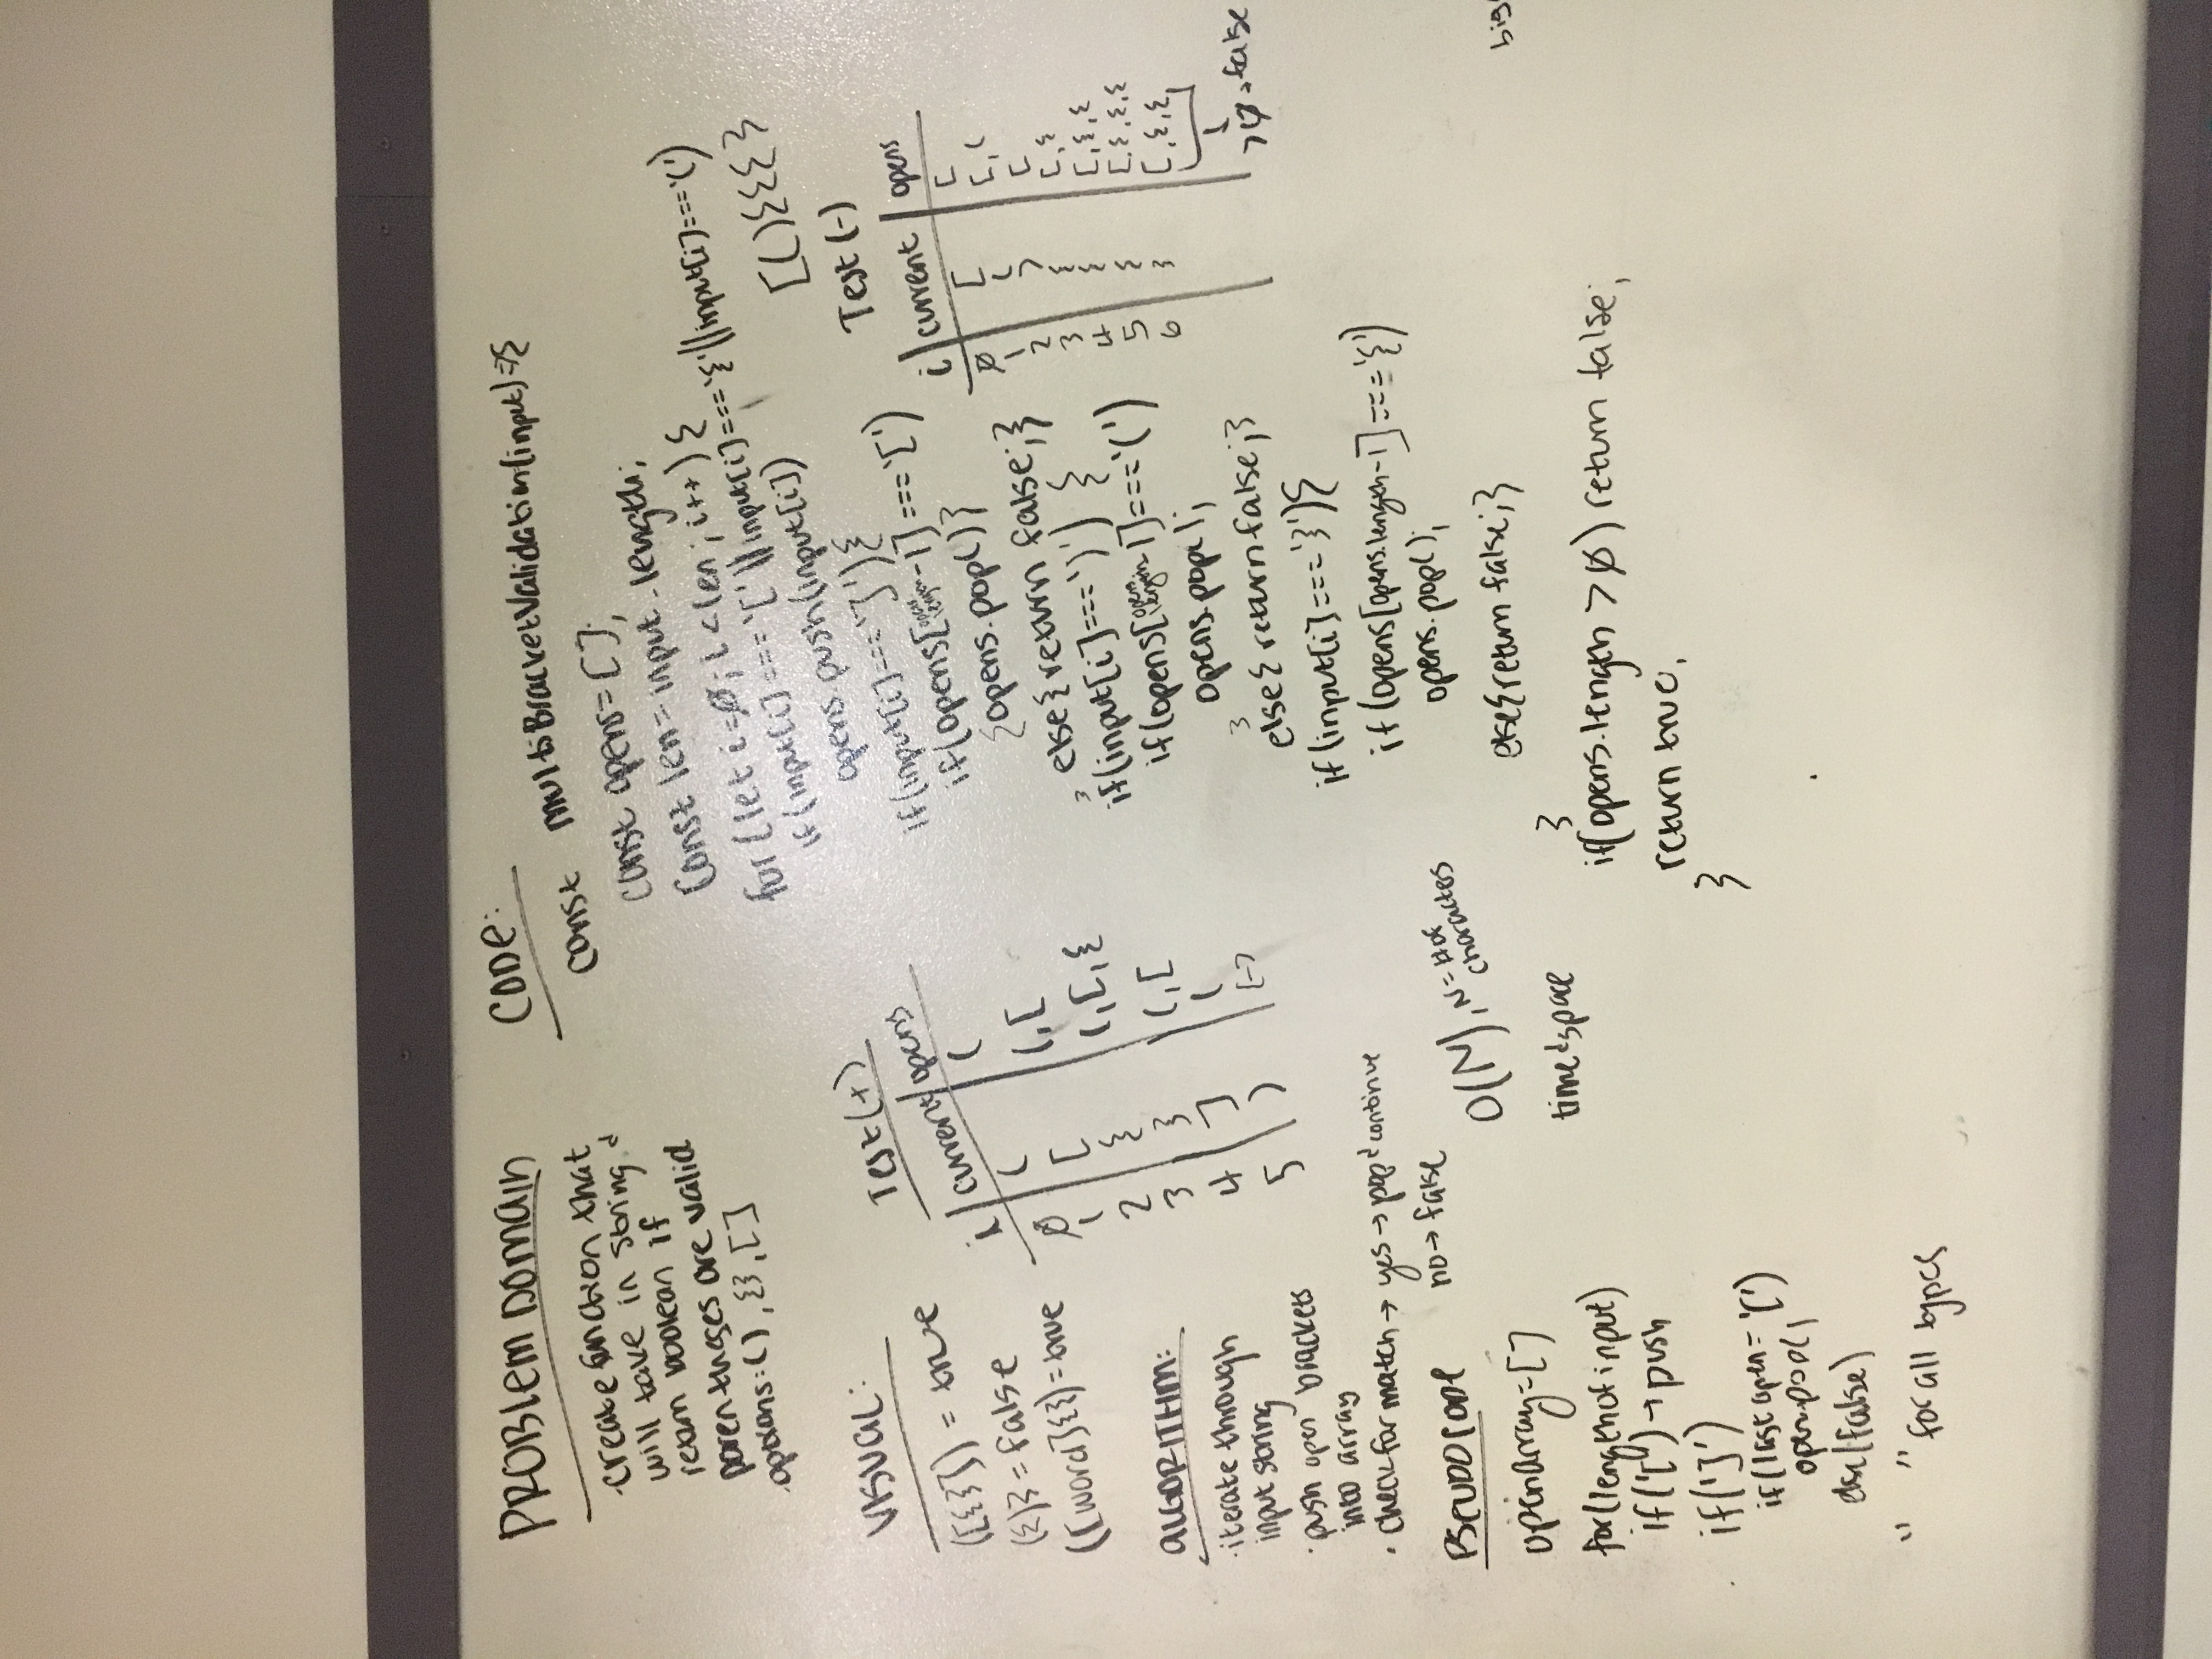 PROBLEM DOMAIN
- create function that
will take in string &
return boolean if
parentheses are valid
- options: (), {}, []
VISUAL:
([{}]) = true
({)} = false
([word]{}) = true
Test (+)
i | current | opens
0 | ( | (
1 | [ | (,[
2 | { | (,[,{
3 | } | (,[
4 | ] | (
5 | ) | [-]
ALGORITHM:
· iterate through
input string
· push open brackets
into array
· check for match → yes → pop & continue
no → false
PSEUDOCODE
openarray=[]
for(length of input)
if('[') → push
if(']')
if(last open = '[')
open.pop()
else(false)
" " for all types
O(N), N = # of
characters
time & space
CODE:
const multiBracketValidation(input)=>{
const opens=[];
const len=input.length;
for(let i=0; i<len; i++) {
if(input[i]==='[' || input[i]==='{' || input[i]==='(')
opens.push(input[i])
if(input[i]===']'){
if(opens[opens.length-1]==='[')
{opens.pop()}
else{return false;}
}
if(input[i]===')') {
if(opens[opens.length-1]==='(')
opens.pop();
}
else{return false;}
if(input[i]==='}'){
if(opens[opens.length-1]==='{')
opens.pop();
else{return false;}
}
if(opens.length >0) return false;
return true;
}
[(){{{}
Test (-)
i | current | opens
0 | [ | [
1 | ( | [,(
2 | ) | [
3 | { | [,{
4 | { | [,{,{
5 | { | [,{,{,{
6 | } | [,{,{
>0 → false
big